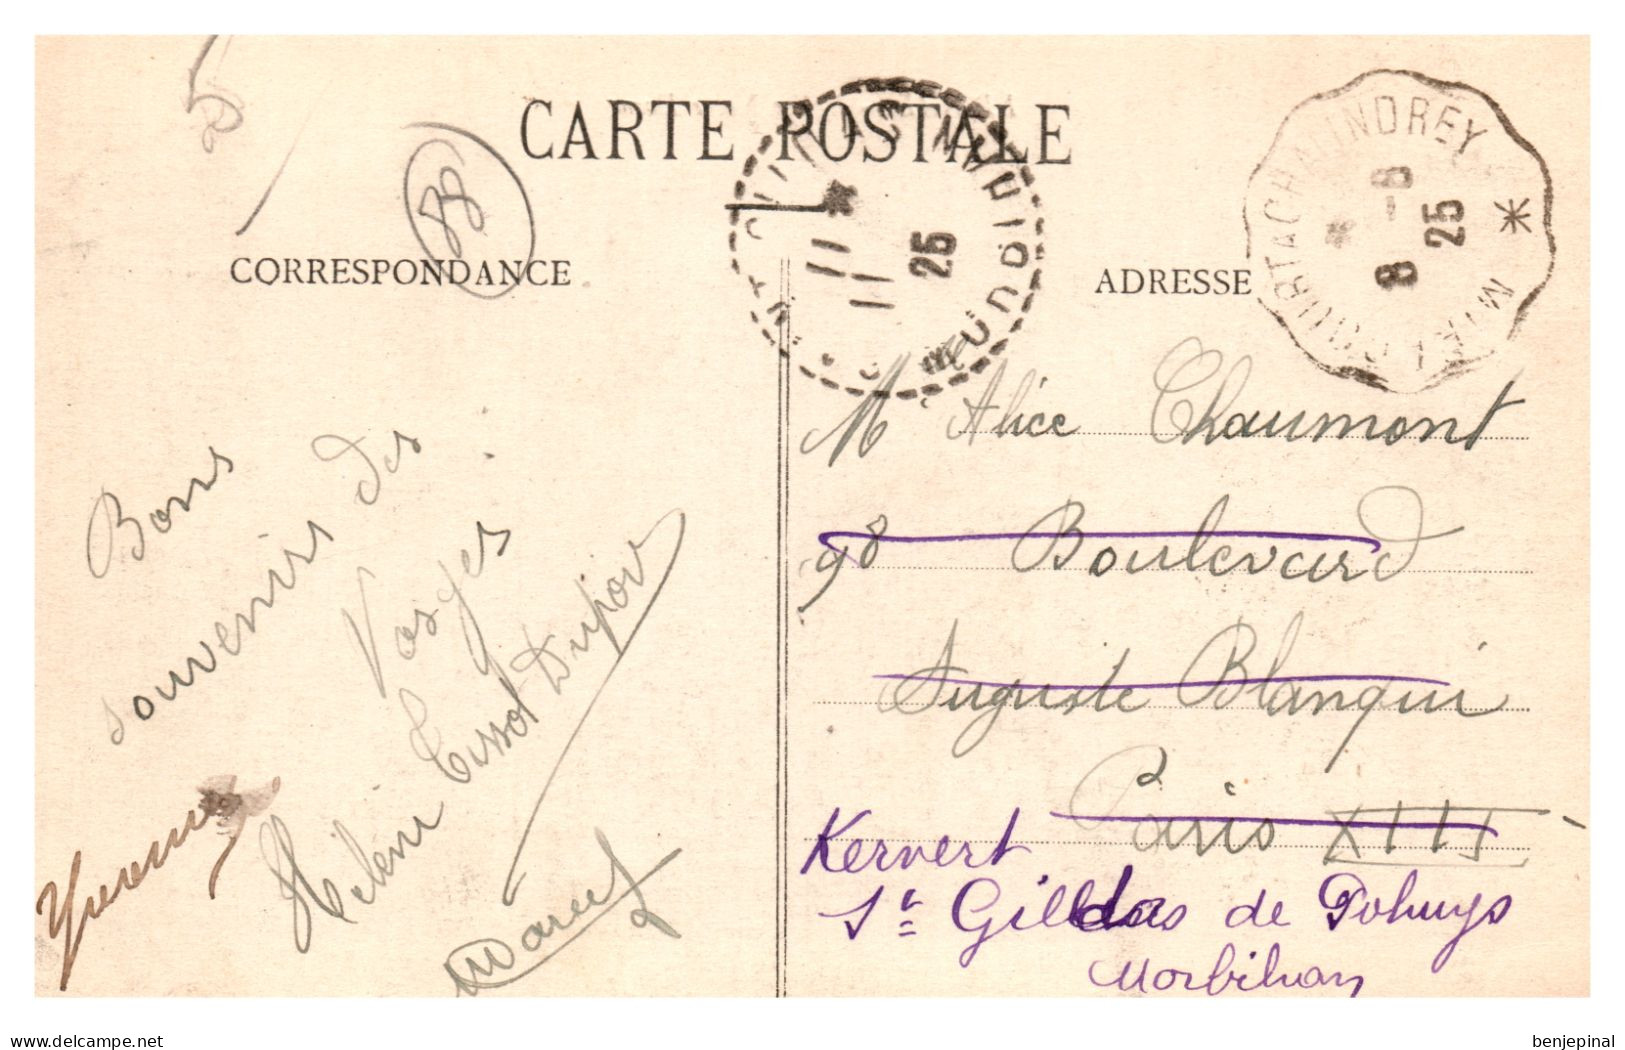 CARTE POSTALE
88
CORRESPONDANCE
ADRESSE
11
11
25
MIRECOURT A CHALINDREY
8 - 8
25
*
Bons
souvenirs des
Vosges
Hélène Tissot Dupon
Marcel
Yvonne
M Alice Chaumont
98 Boulevard
Auguste Blanqui
Paris XIII
Kervert
St Gildas de Rohuys
Morbihan
www.delcampe.net
benjepinal